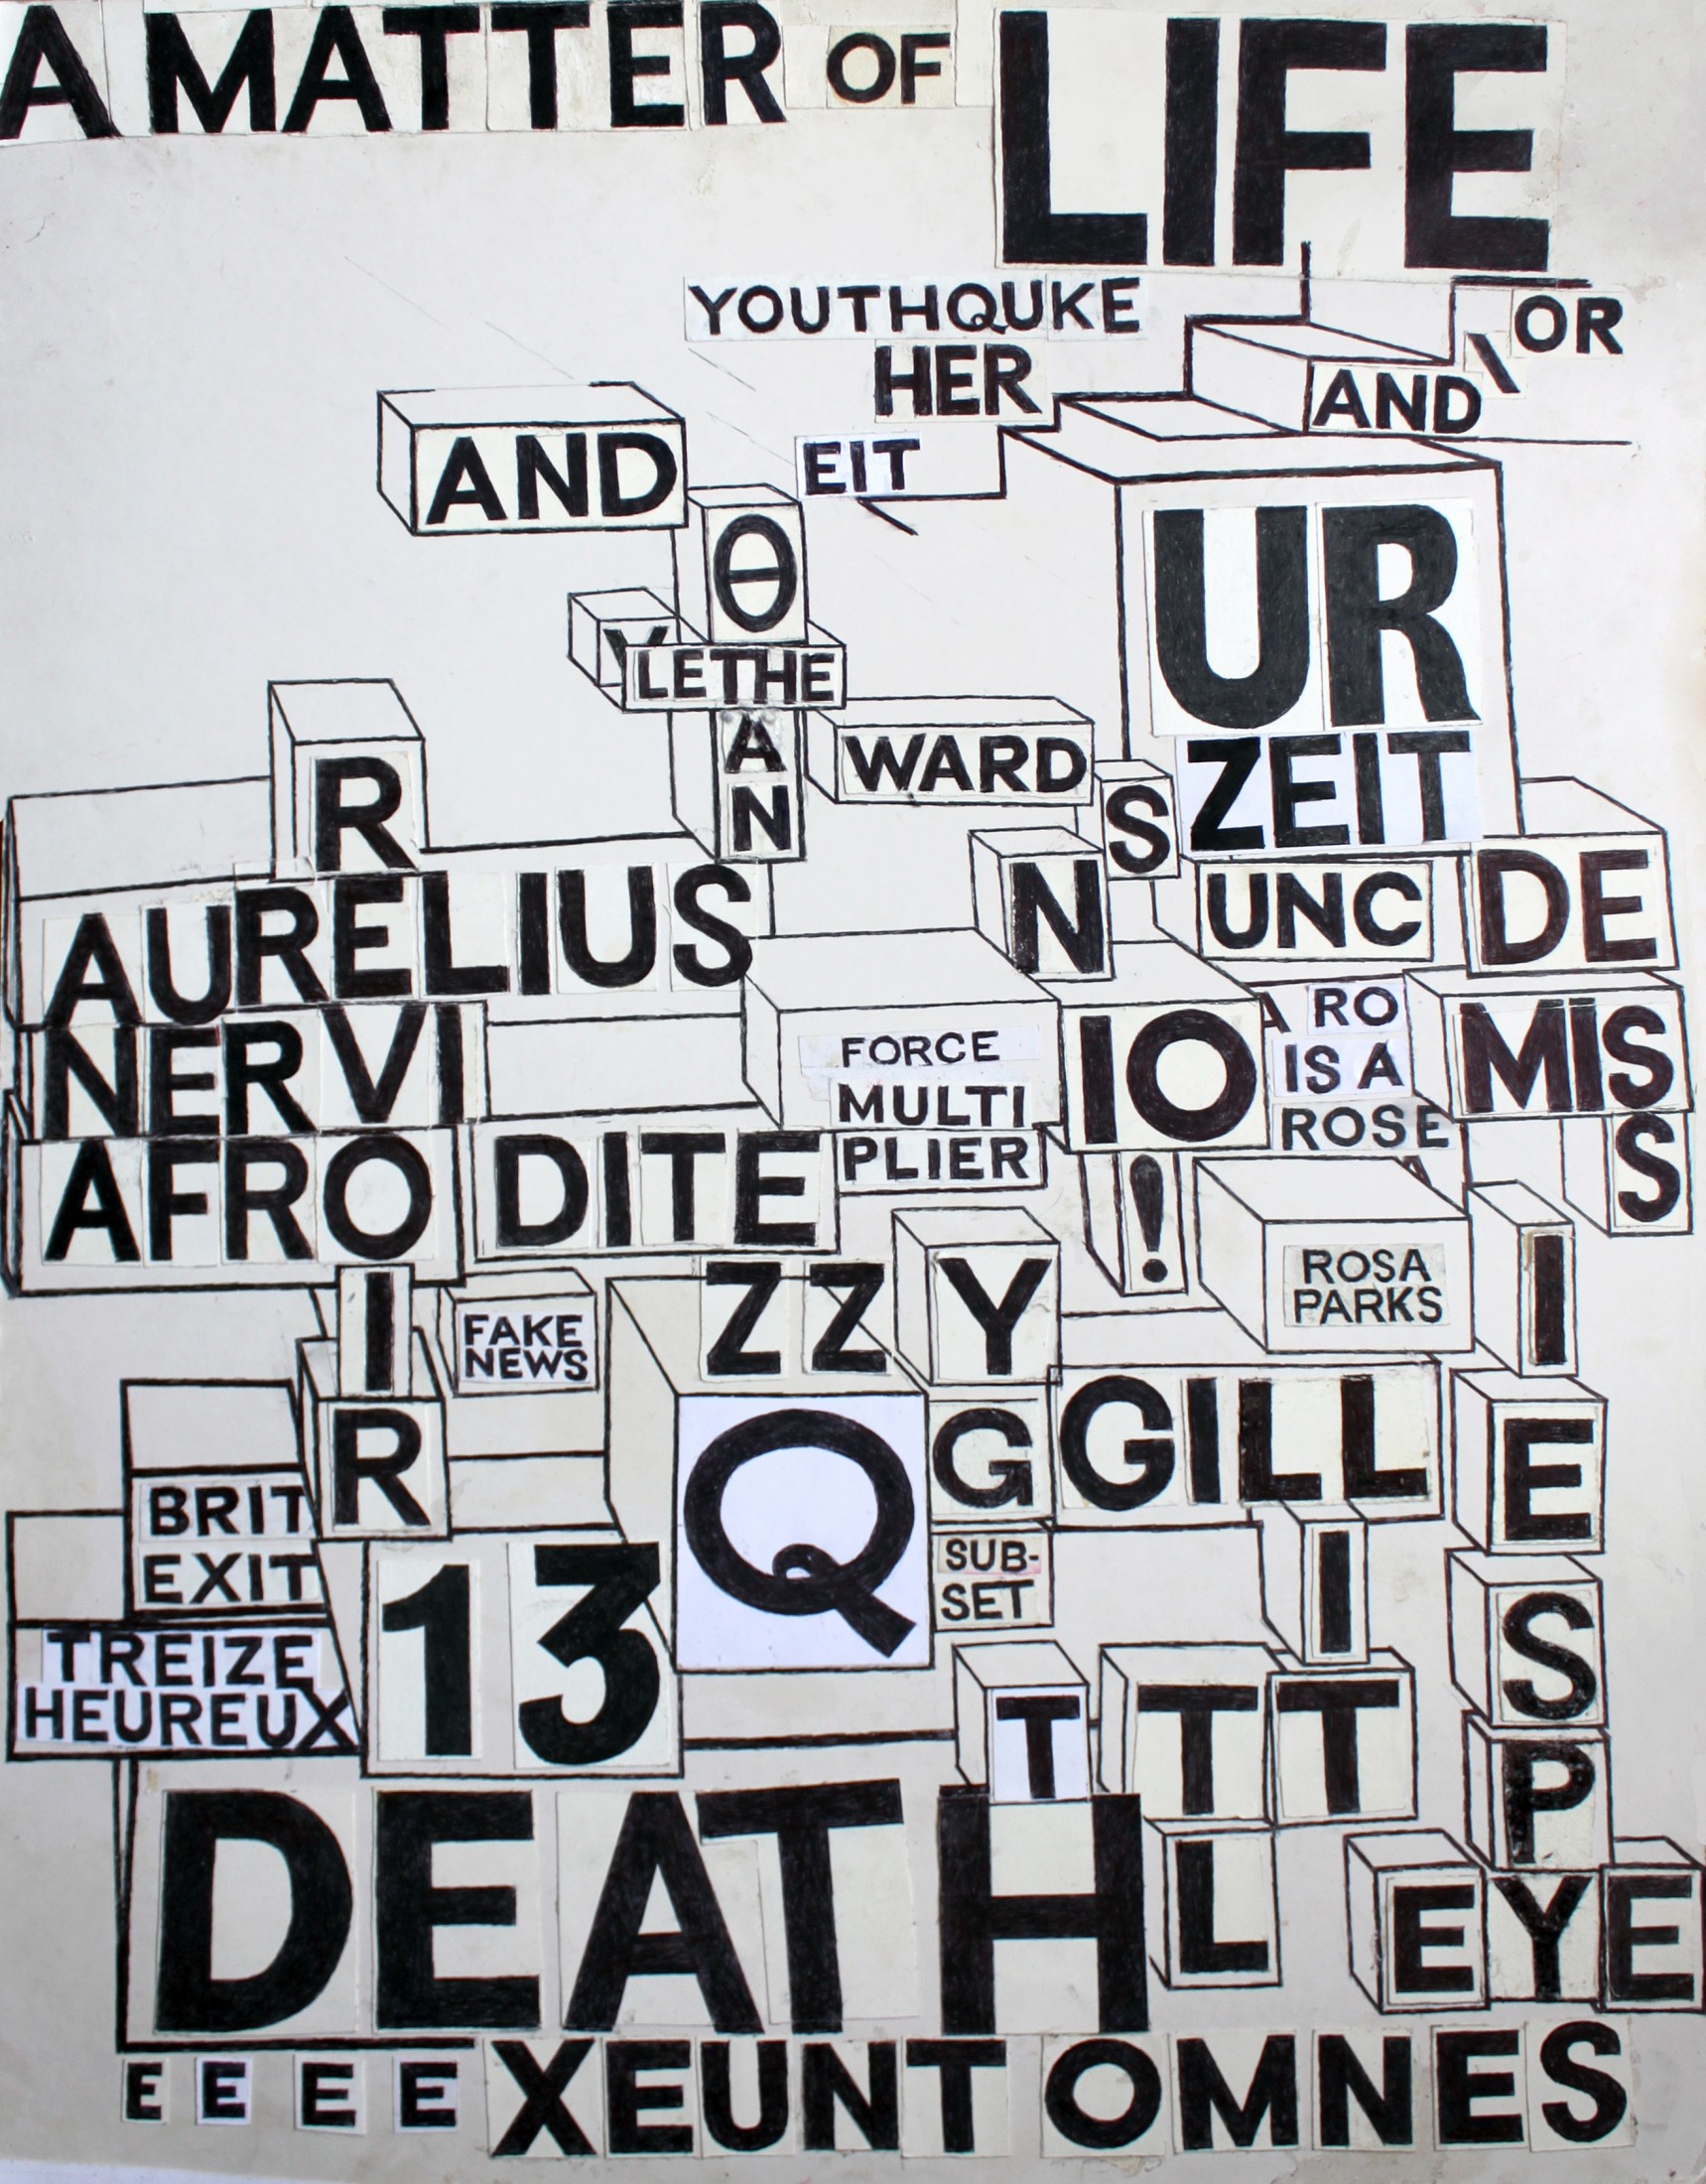 A MATTER OF LIFE
YOUTHQUKE
OR
HER
AND
AND
EIT
Θ
UR
Y
LETHE
A
N
WARD
ZEIT
R
S
AURELIUS
N
UNC
DE
NERVI
FORCE
MULTI
PLIER
IO
!
A RO
IS A
ROSE
A
MIS
S
AFRO DITE
I
R
FAKE
NEWS
ZZ
Y
ROSA
PARKS
I
Q
G
GGILL
E
BRIT
EXIT
SUB-
SET
I
S
TREIZE
HEUREUX
13
T
T
T
P
DEATH
L
EYE
E E E E XEUNT OMNES